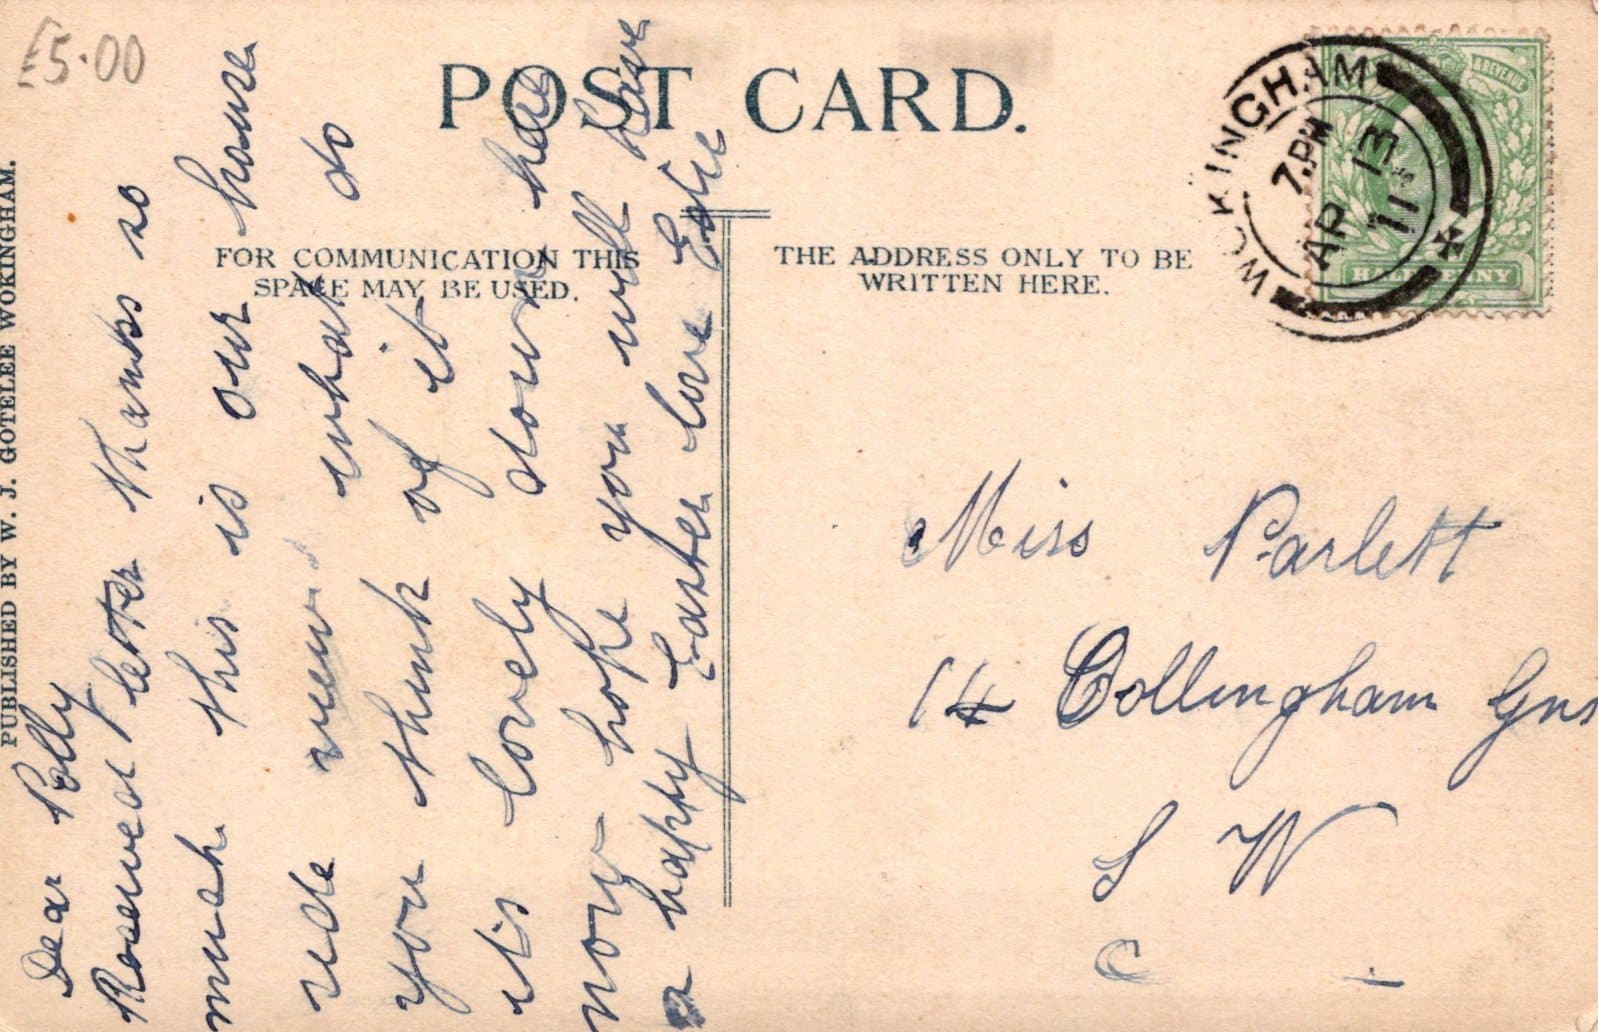 £5.00
POST CARD.
FOR COMMUNICATION THIS
SPACE MAY BE USED.
THE ADDRESS ONLY TO BE
WRITTEN HERE.
PUBLISHED BY W. J. GOTELEE WOKINGHAM.
WOKINGHAM
7. PM
AP 13
11
& REVENUE
HALFPENNY
Dear Polly
Received letter thanks so
much this is our house
side view what do
you think of it
it's lovely down here
now hope you will have
a happy Easter love Edie
Miss Parlett
14 Collingham Gns
S W